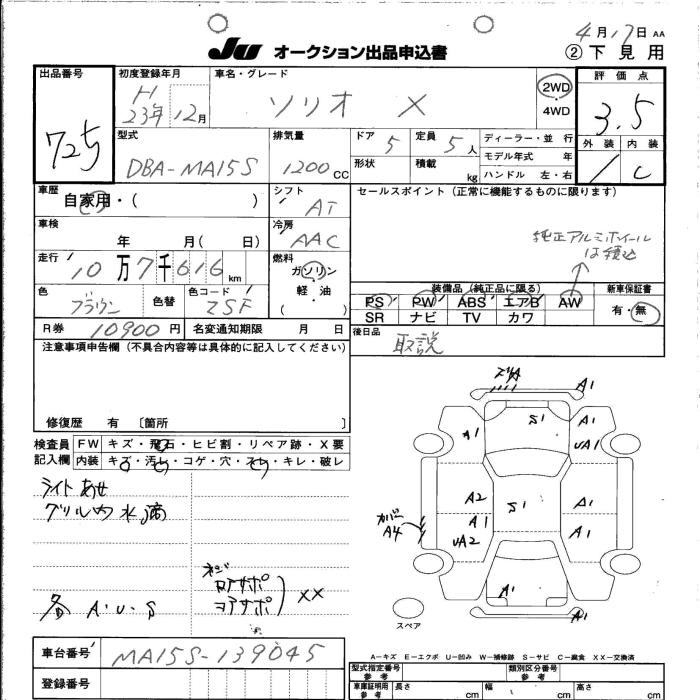 4月17日 AA
JU オークション出品申込書 ② 下見用
出品番号
725
初度登録年月
H
23年12月
車名・グレード
ソリオ X
2WD
4WD
評価点
3.5
外装 内装
1 C
型式
DBA-MA15S
排気量
1200 CC
ドア 5
定員 5人
形状
積載 kg
ディーラー・並行
モデル年式 年
ハンドル 左・右
車歴
自家用・( )
シフト
AT
セールスポイント(正常に機能するものに限ります)
車検
年 月( 日)
冷房
AAC
純正アルミホイール
は積込
走行
10万7千616km
燃料
ガソリン
軽・油
( )
色
ブラウン
色替
色コード
ZSF
装備品(純正品に限る)
PS PW ABS エアB AW
SR ナビ TV カワ
新車保証書
有・無
R券 10900円
名変通知期限 月 日
後日品
取説
注意事項申告欄(不具合内容等は具体的に記入してください)
修復歴 有 〔箇所 〕
検査員
記入欄
FW キズ・飛石・ヒビ割・リペア跡・X要
内装 キズ・汚レ・コゲ・穴・ネジ・キレ・破レ
ライトあせ
グリル内 水滴
ネジ
コアサポ
XX
各 A・U・S
A1
A1
S1
A1
UA1
A2
S1
A1
A1
カバー
A4
UA2
A1
A1
A1
スペア
A－キズ E－エクボ U－凹み W－補修跡 S－サビ C－腐食 XX－交換済
車台番号
MA15S-139045
登録番号
型式指定番号
参考
類別区分番号
参考
車庫証明用
参考
長さ cm
幅 cm
高さ cm